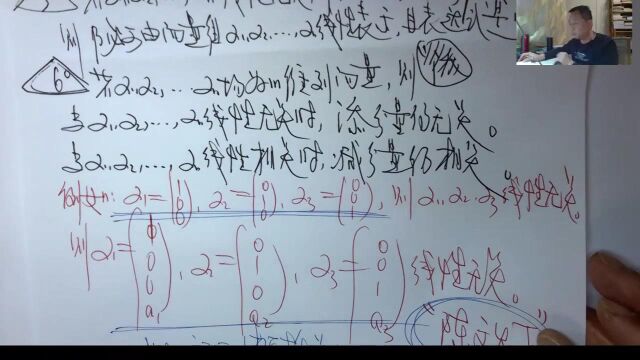 则β必可由向量组α₁,α₂,…,αₙ线性表示,且表达式唯一
6° 若α₁,α₂,…αₙ均为m维列向量,则 升级
当α₁,α₂,…,αₙ线性无关时,添分量仍无关。
当α₁,α₂,…,αₙ线性相关时,减分量仍相关。
例如: α₁=(1 0 0), α₂=(0 1 0), α₃=(0 0 1), 则α₁,α₂,α₃线性无关。
则α₁=(1 0 0 a₁), α₂=(0 1 0 a₂), α₃=(0 0 1 a₃)线性无关。